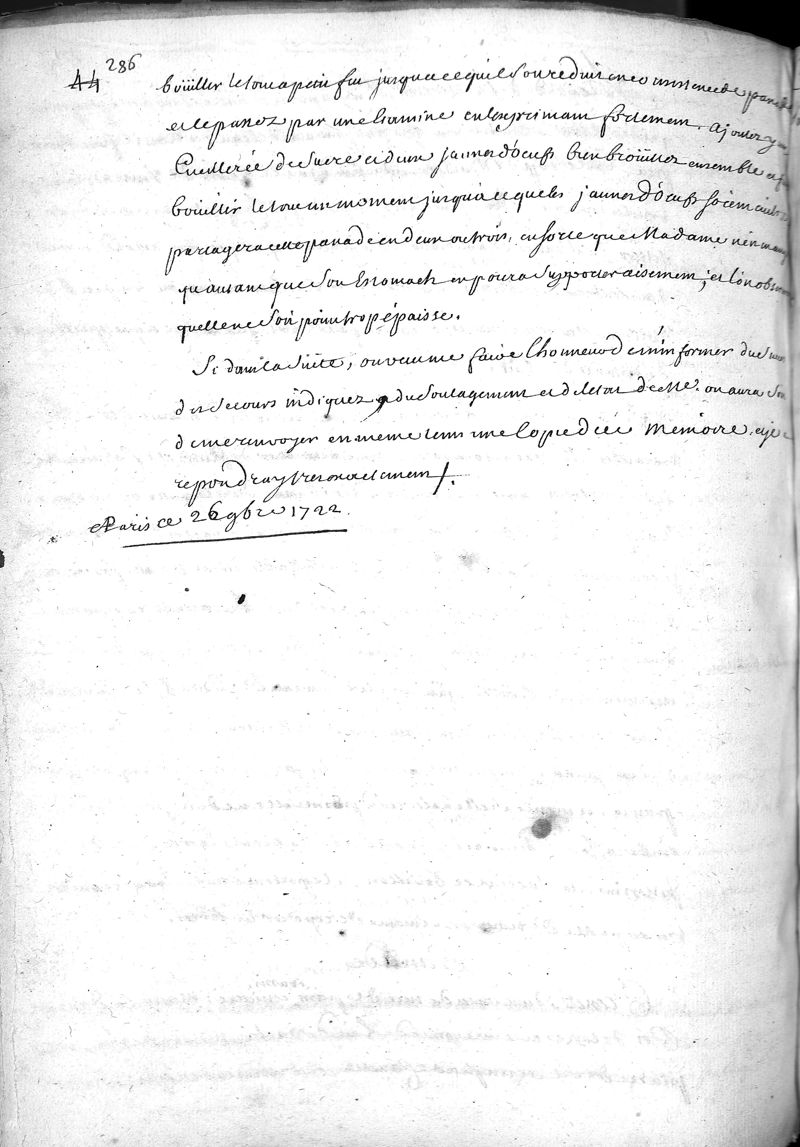 44 286
boüillir le tout a petit feu jusqua ce quil soit reduit en consistence de panade
et le passez par une Etamine en lexprimant fortement. ajoutez y une
Cuillerée de sucre et d'un jaunes d'œufs bien broüillez ensemble et
boüillir le tout un moment jusqu'a ce que les jaunes d'œufs soient cuits
partagera cette panade en deux ou trois, en sorte que Madame n'en mange
qu'autant que son Estomach en poura supporter aisement; et l'on observera
quelle ne soit point trop épaisse.
Si dans la suite, on veut me faire l'honneur de m'informer du succez
des secours indiquez, du soulagement et de letat de Me. on aura soin
de me renvoyer en meme tems une Copie de ce Memoire, et je
repondray tres exactement /.
A Paris ce 26 9bre 1722